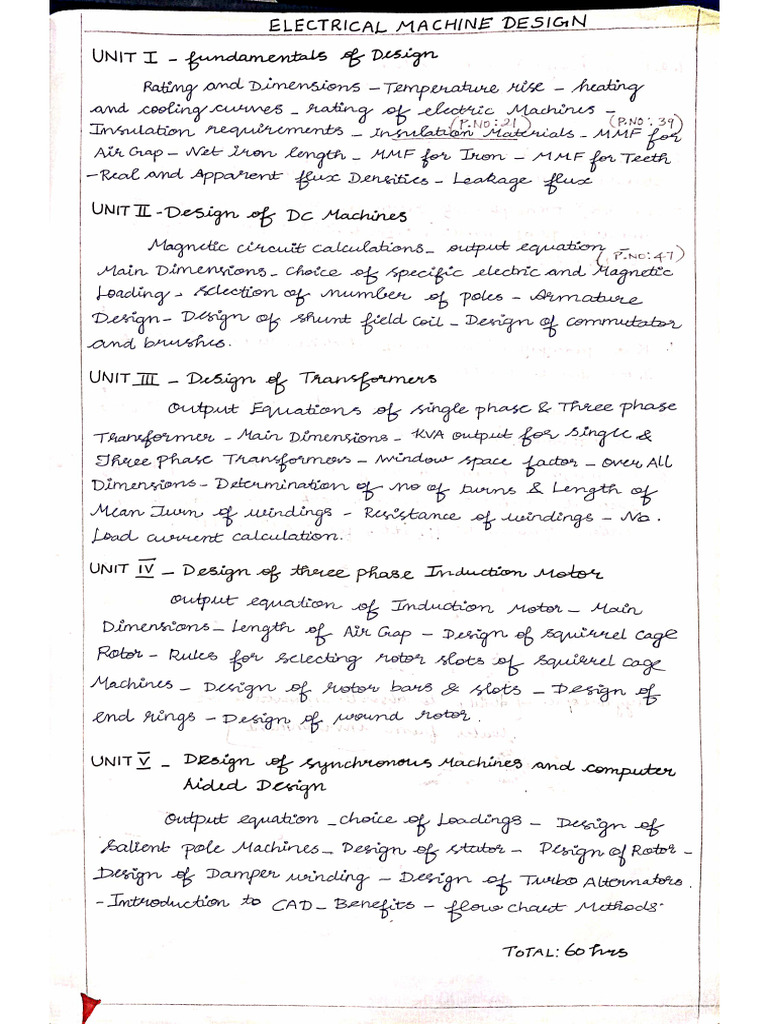 ELECTRICAL MACHINE DESIGN
UNIT I - fundamentals of Design
Rating and Dimensions - Temperature rise - heating
and cooling curves - rating of electric Machines -
(P.NO:21) (P.NO:39)
Insulation requirements - Insulation Materials - MMF for
Air Gap - Net iron length - MMF for Iron - MMF for Teeth
- Real and Apparent flux Densities - Leakage flux
UNIT II - Design of DC Machines
Magnetic circuit calculations - output equation -
(P.NO:47)
Main Dimensions - Choice of specific electric and Magnetic
Loading - Selection of number of poles - Armature
Design - Design of shunt field coil - Design of commutator
and brushes.
UNIT III - Design of Transformers
Output Equations of single phase & Three phase
Transformer - Main Dimensions - KVA output for single &
Three Phase Transformers - Window space factor - Over All
Dimensions - Determination of no of turns & Length of
Mean Turn of windings - Resistance of windings - No.
Load current calculation.
UNIT IV - Design of three phase Induction Motor
Output equation of Induction Motor - Main
Dimensions - Length of Air Gap - Design of squirrel cage
Rotor - Rules for selecting rotor slots of squirrel cage
Machines - Design of rotor bars & slots - Design of
end rings - Design of wound rotor.
UNIT V - Design of synchronous Machines and computer
Aided Design
Output equation - choice of Loadings - Design of
Salient pole Machines - Design of stator - Design of Rotor -
Design of Damper winding - Design of Turbo Alternators.
- Introduction to CAD - Benefits - flow chart Methods.
TOTAL: 60 hrs